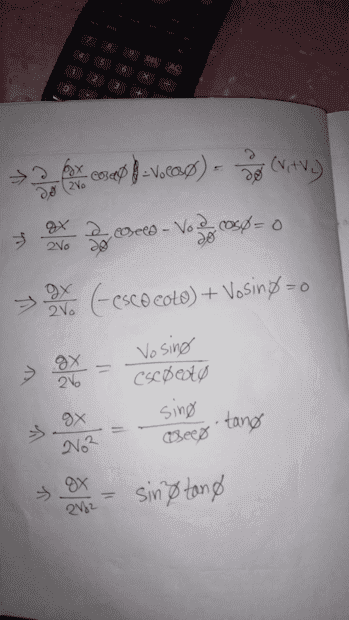 ⇒ ∂/∂ø (gx/2V₀ cosecø - V₀cosø) = ∂/∂ø (V₁+V₂)
⇒ gx/2V₀ ∂/∂ø cosecθ - V₀ ∂/∂ø cosø = 0
⇒ gx/2V₀ (-cscθ cotθ) + V₀sinø = 0
⇒ gx/2V₀ = V₀ sinø / cscø cotø
⇒ gx/2V₀² = sinø / cosecø · tanø
⇒ gx/2V₀² = sin²ø tanø